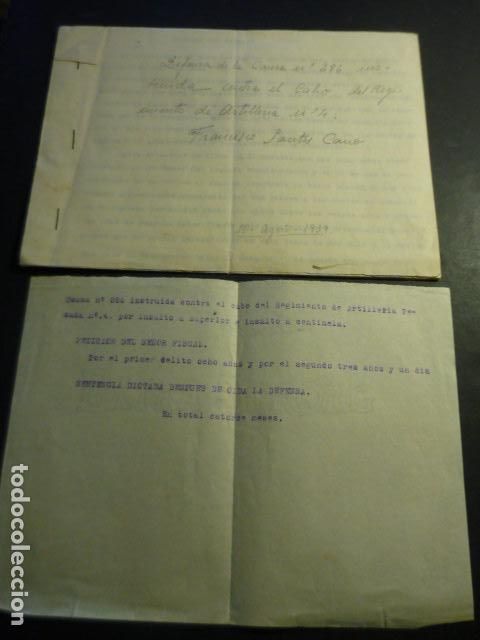 Defensa de la Causa nº 286 ins-
truida contra el Cabo del Regi-
miento de Artilleria nº 4.
Francisco Santos Cano
10-Agosto-1939
Causa nº 286 instruida contra el cabo del Regimiento de Artilleria Pe-
sada nº.4. por insulto a superior e insulto a centinela.
PETICION DEL SEÑOR FISCAL.
Por el primer delito ocho años y por el segundo tres años y un dia
SENTENCIA DICTADA DESPUES DE OIDA LA DEFENSA.
En total catorce meses.
todocoleccion